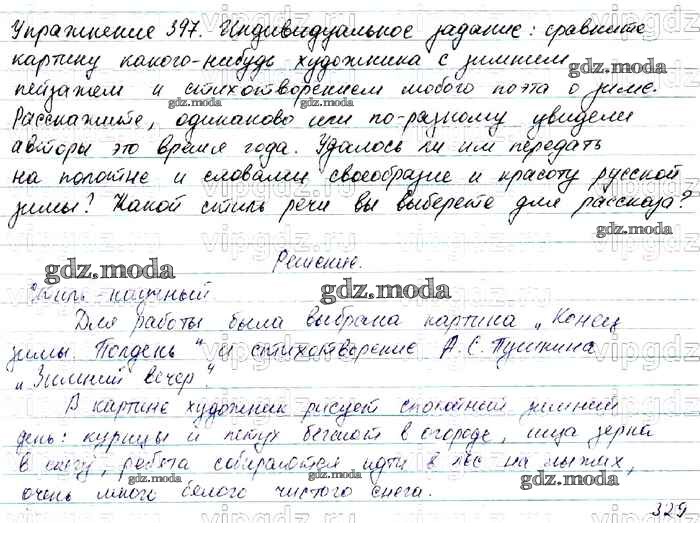 Упражнение 397. Индивидуальное задание: сравните
картину какого-нибудь художника с зимним
пейзажем и стихотворением любого поэта о зиме.
Расскажите, одинаково или по-разному увидели
авторы это время года. Удалось ли им передать
на полотне и словами своеобразие и красоту русской
зимы? Какой стиль речи вы выберете для рассказа?
Решение.
Стиль - научный.
Для работы была выбрана картина „Конец
зимы. Полдень“ и стихотворение А.С. Пушкина
„Зимний вечер“.
В картине художник рисует спокойный зимний
день: курицы и петух бегают в огороде, ища зерна
в снегу, ребята собираются идти в лес на лыжах,
очень много белого чистого снега.
329
gdz.moda
vipgdz.ru